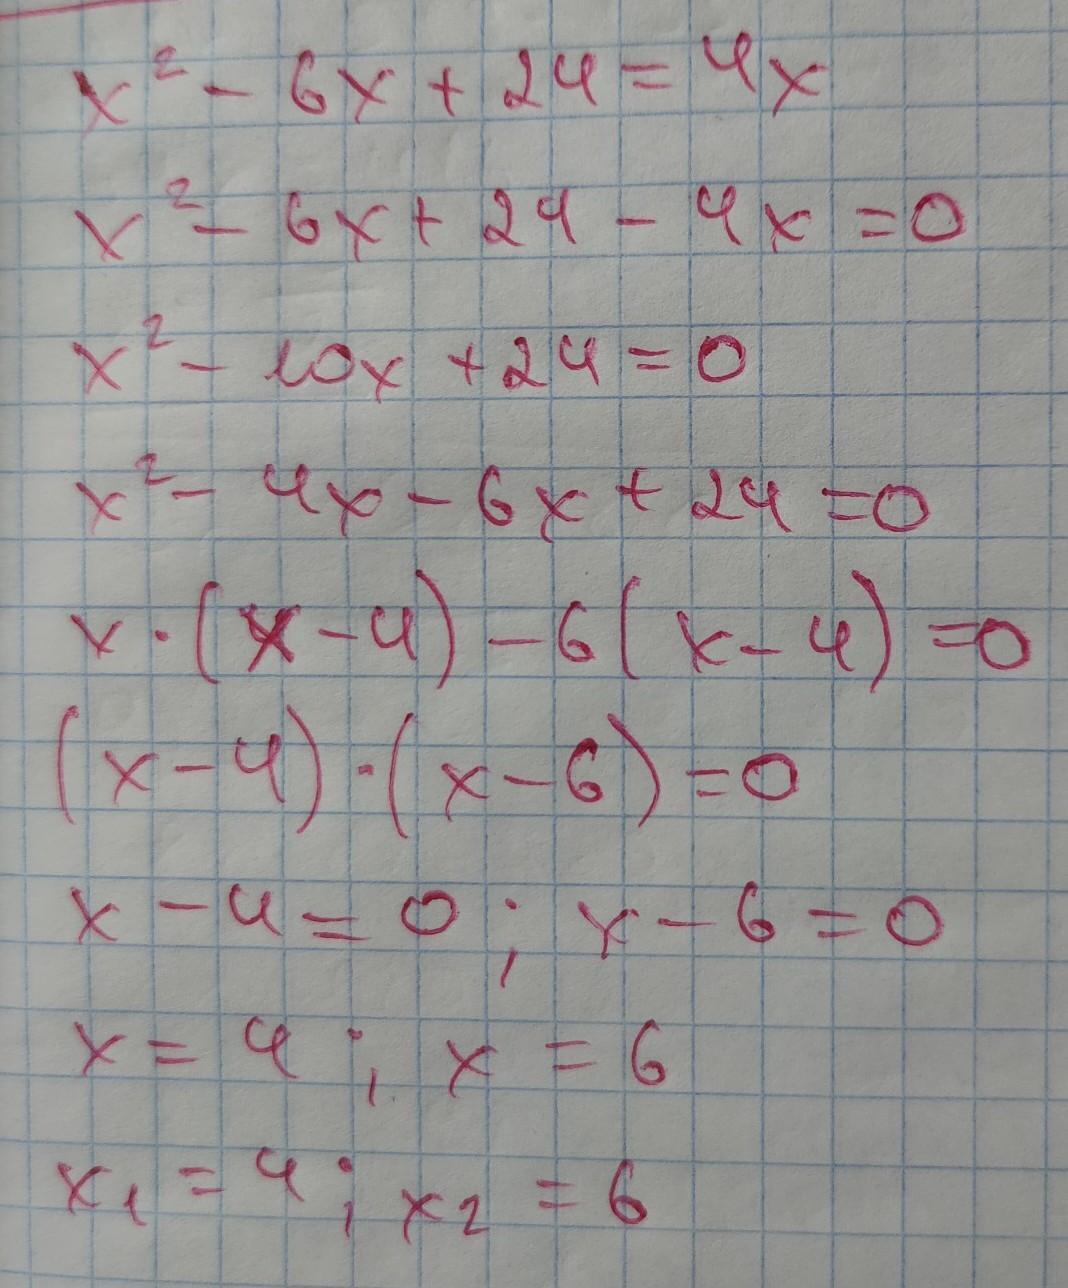 x² - 6x + 24 = 4x
x² - 6x + 24 - 4x = 0
x² - 10x + 24 = 0
x² - 4x - 6x + 24 = 0
x · (x - 4) - 6(x - 4) = 0
(x - 4) · (x - 6) = 0
x - 4 = 0 ; x - 6 = 0
x = 4 ; x = 6
x₁ = 4 ; x₂ = 6